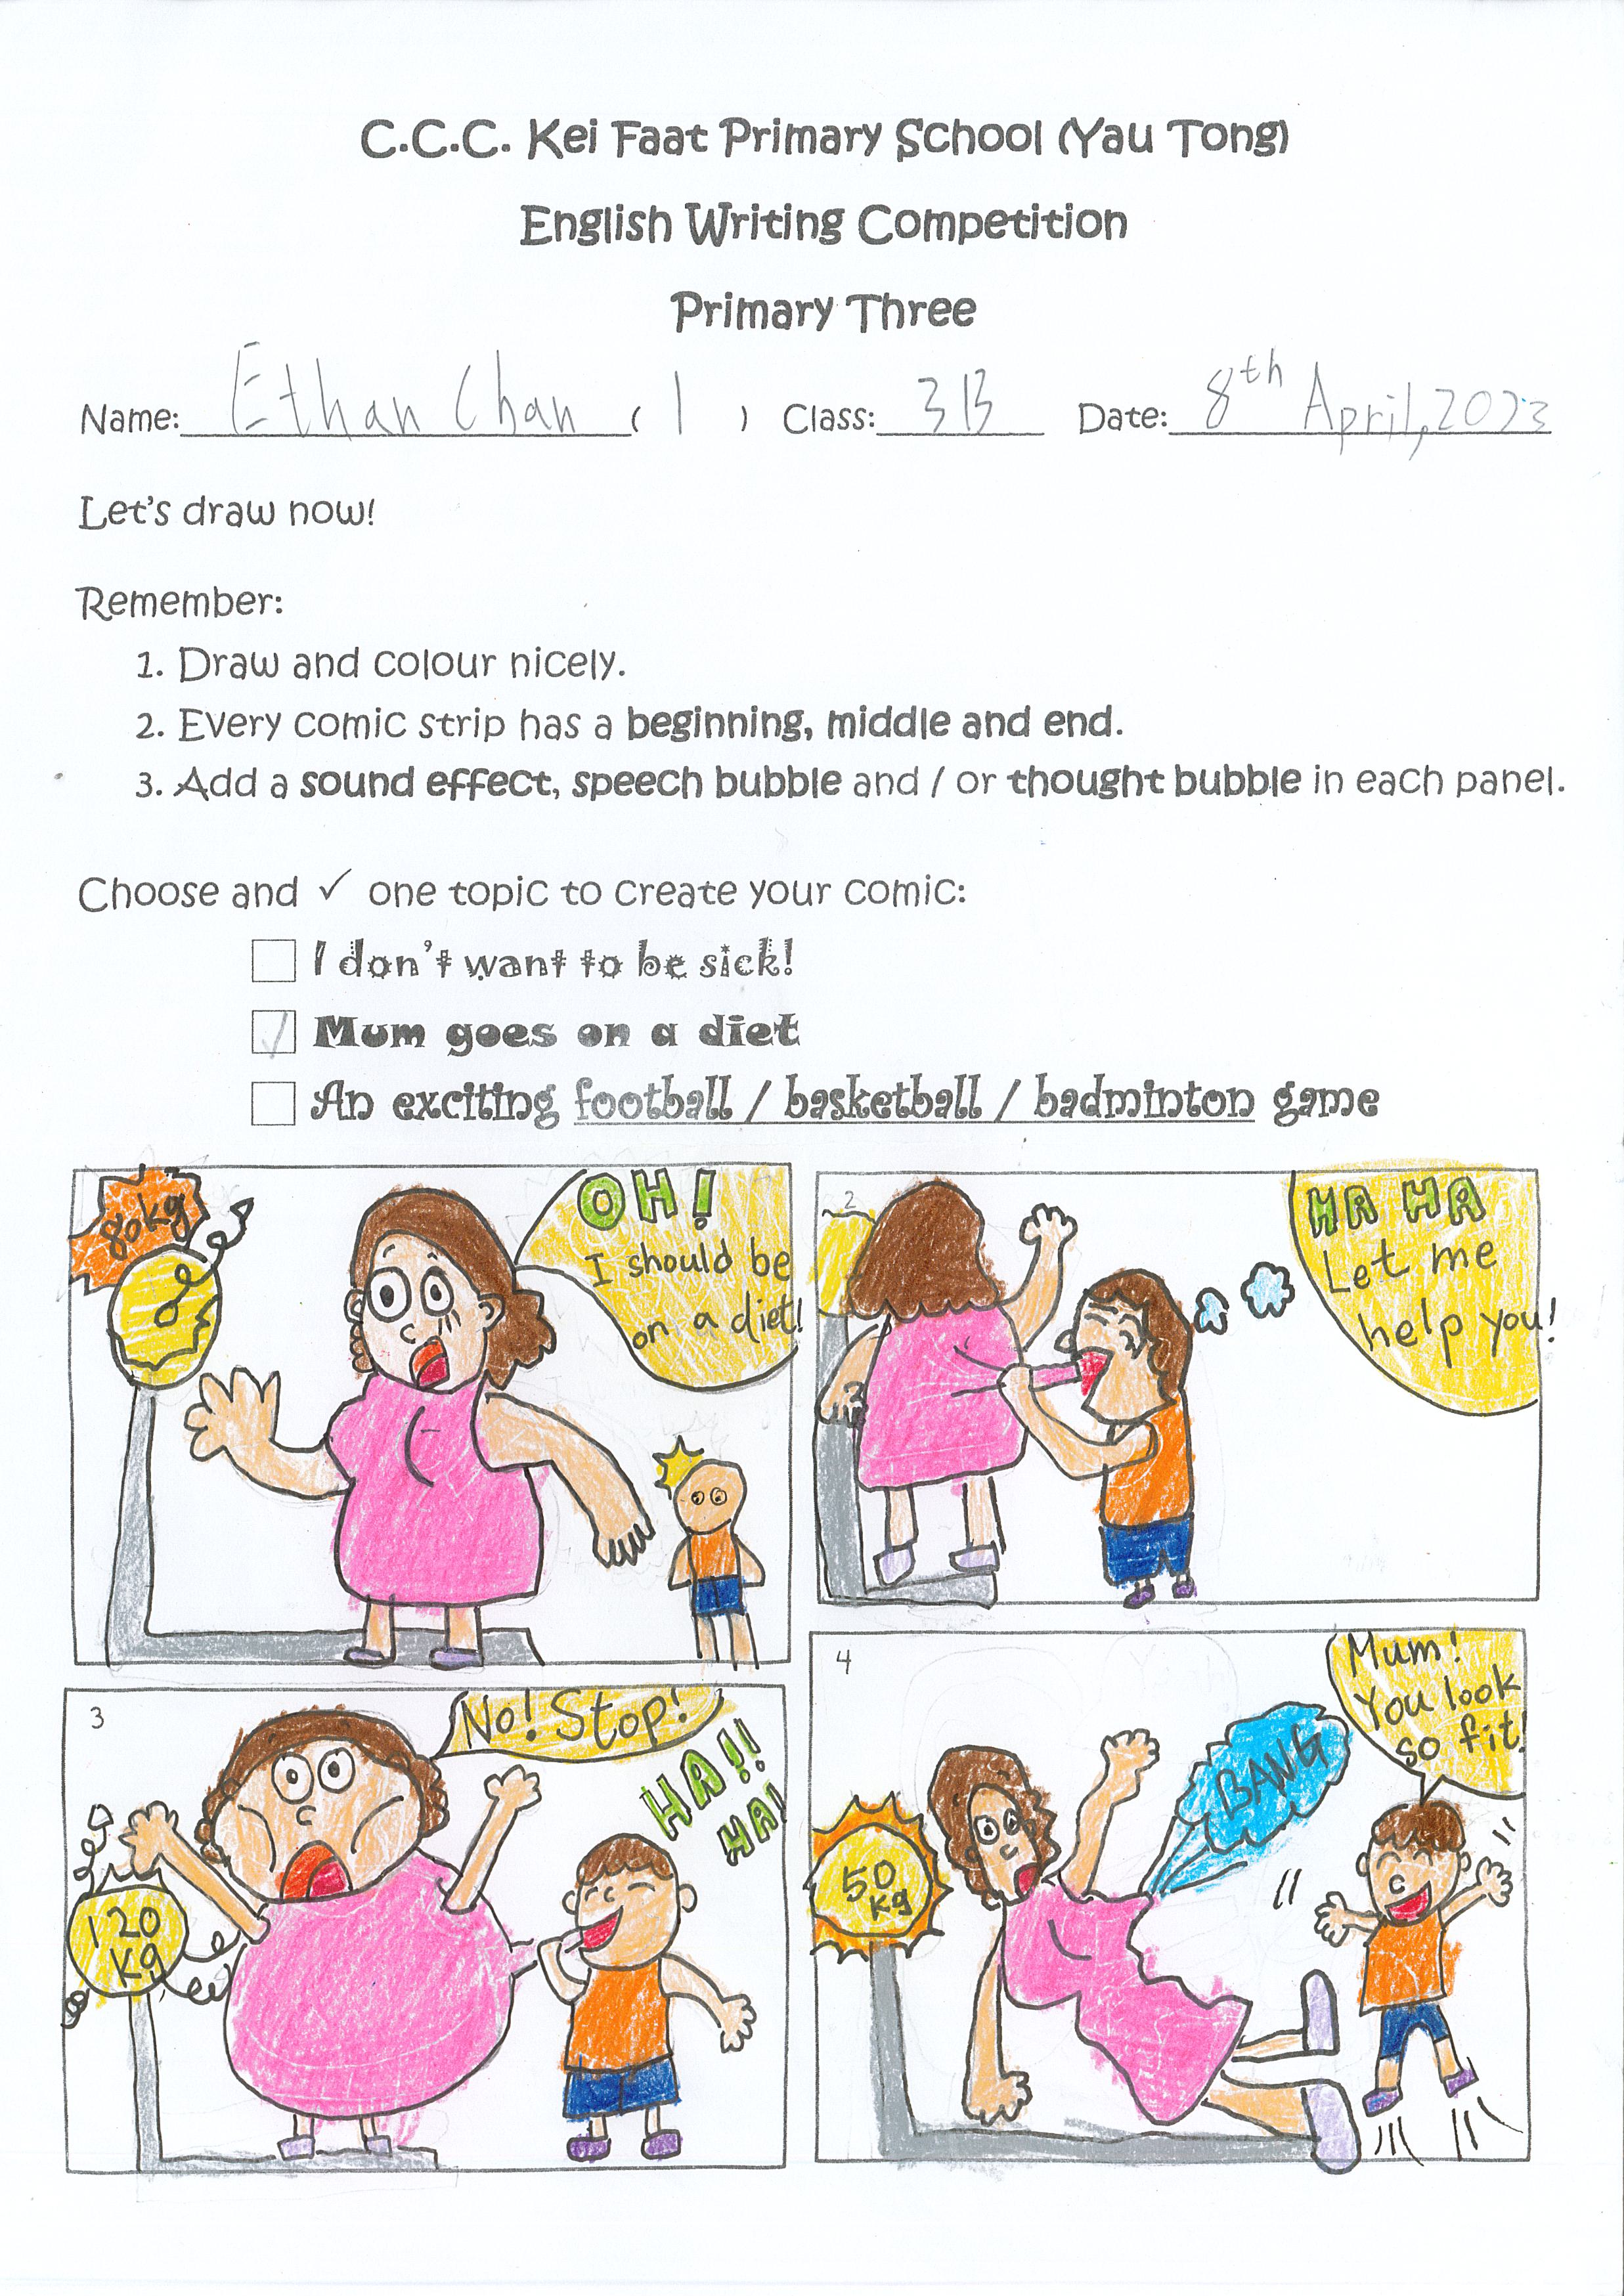 C.C.C. Kei Faat Primary School (Yau Tong)
English Writing Competition
Primary Three
Name: Ethan Chan ( 1 ) Class: 3B Date: 8th April, 2023
Let's draw now!
Remember:
1. Draw and colour nicely.
2. Every comic strip has a beginning, middle and end.
3. Add a sound effect, speech bubble and / or thought bubble in each panel.
Choose and ✓ one topic to create your comic:
I don't want to be sick!
✓ Mum goes on a diet
An exciting football / basketball / badminton game
80kg
OH!
I should be
on a diet!
2
HA HA
Let me
help you!
3
No! Stop!
HA!!
HA!
120
kg
4
Mum!
You look
so fit!
BANG
50
kg